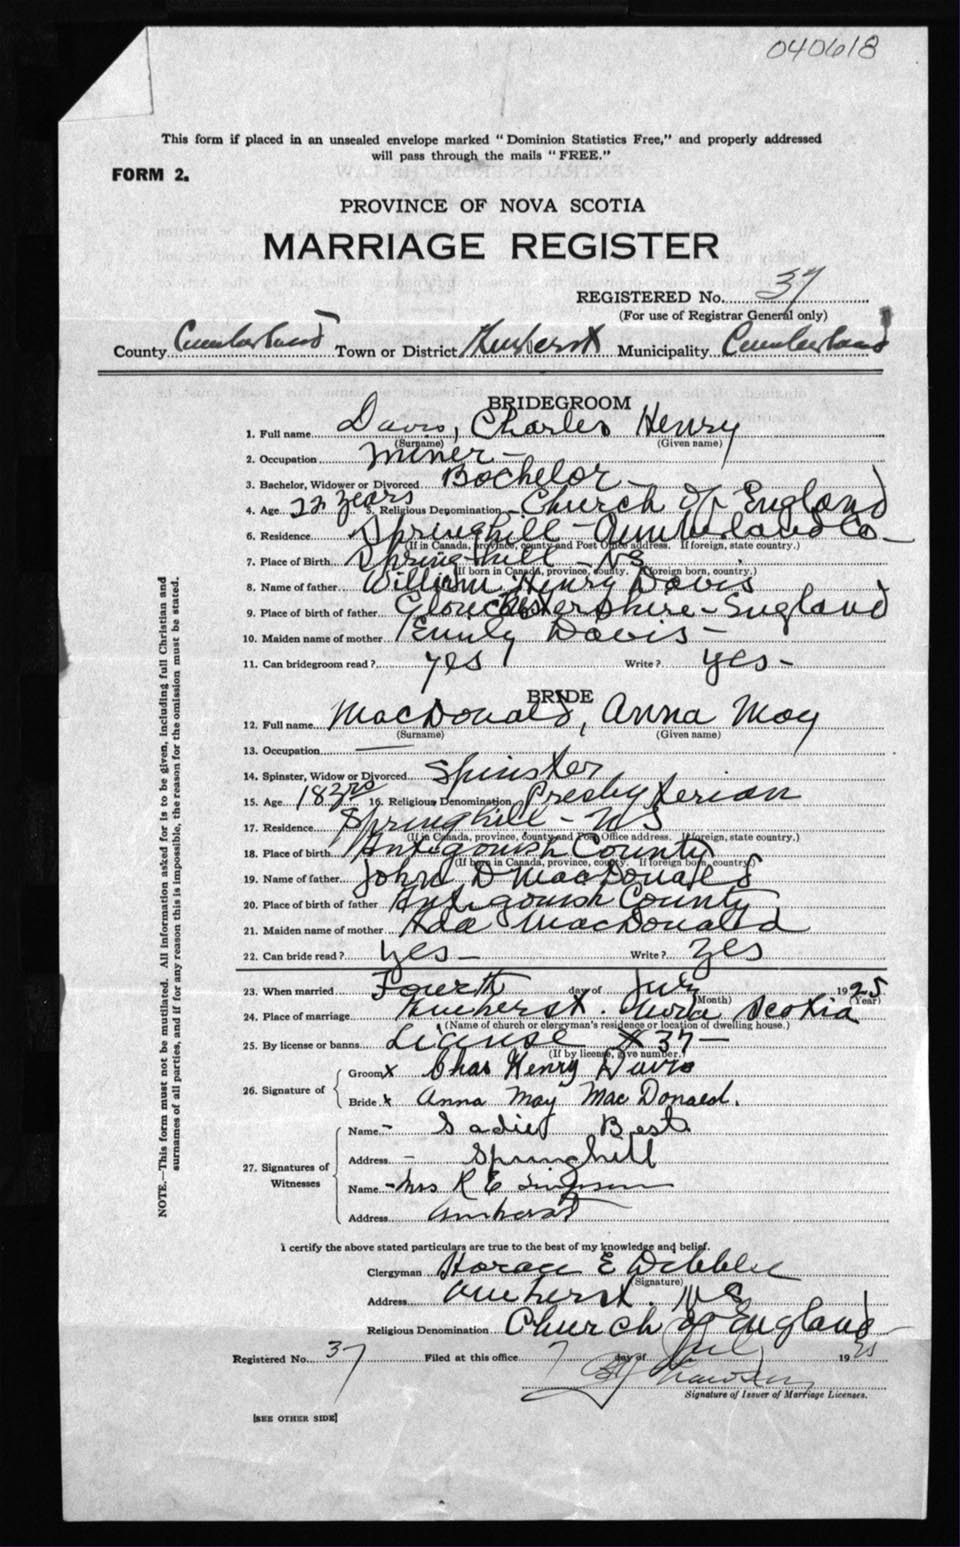 040618
This form if placed in an unsealed envelope marked "Dominion Statistics Free," and properly addressed
will pass through the mails "FREE."
FORM 2.
PROVINCE OF NOVA SCOTIA
MARRIAGE REGISTER
REGISTERED No. 37
(For use of Registrar General only)
County Cumberland Town or District Amherst Municipality Cumberland
BRIDEGROOM
1. Full name Davis, Charles Henry
(Surname) (Given name)
2. Occupation Miner -
3. Bachelor, Widower or Divorced Bachelor -
4. Age 22 years 5. Religious Denomination Church of England
6. Residence Springhill - Cumberland Co -
(If in Canada, province, county and Post Office address. If foreign, state country.)
7. Place of Birth Springhill - NS
(If born in Canada, province, county. If foreign born, country.)
8. Name of father William Henry Davis
9. Place of birth of father Gloucestershire - England
10. Maiden name of mother Emily Davis -
11. Can bridegroom read? yes Write? yes -
BRIDE
12. Full name MacDonald, Anna May
(Surname) (Given name)
13. Occupation —
14. Spinster, Widow or Divorced Spinster
15. Age 18 yrs 16. Religious Denomination Presbyterian
17. Residence Springhill - NS
(If in Canada, province, county and Post Office address. If foreign, state country.)
18. Place of birth Antigonish County
(If born in Canada, province, county. If foreign born, country.)
19. Name of father John D MacDonald
20. Place of birth of father Antigonish County
21. Maiden name of mother Ada MacDonald
22. Can bride read? yes - Write? yes
23. When married Fourth day of July 1925
(Month) (Year)
24. Place of marriage Amherst. Nova Scotia
(Name of church or clergyman's residence or location of dwelling house.)
25. By license or banns License # 37 —
(If by license, give number.)
26. Signature of
Groom x Chas Henry Davis
Bride x Anna May MacDonald.
27. Signatures of Witnesses
Name - Sadie Best
Address - Springhill
Name - Mrs R E
Address Amherst
I certify the above stated particulars are true to the best of my knowledge and belief.
Clergyman Horace E Dibblee
(Signature)
Address Amherst. NS
Religious Denomination Church of England
Registered No. 37 Filed at this office 7 day of July 1925
Signature of Issuer of Marriage Licenses.
[SEE OTHER SIDE]
NOTE.—This form must not be mutilated. All information asked for is to be given, including full Christian and
surnames of all parties, and if for any reason this is impossible, the reason for the omission must be stated.